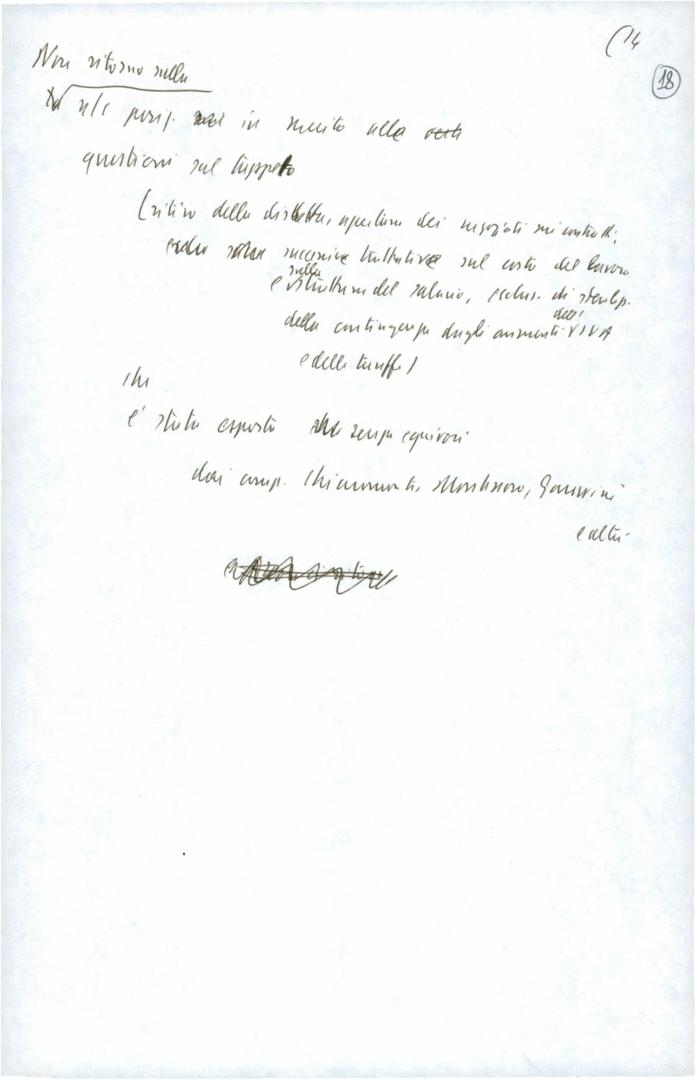 (14
18
Non ritorno sulla
n/s posiz. in merito alla
questioni sul tappeto
(ritiro della disdetta, apertura dei negoziati sui contratti,
successive trattative sul costo del lavoro
e sulla struttura del salario, esclus. di steriliz.
della contingenza dagli aumenti dell'IVA
e delle tariffe)
che
e' stata esposta senza equivoci
dai comp. Chiaromonte, Montessoro, Garavini
e altri